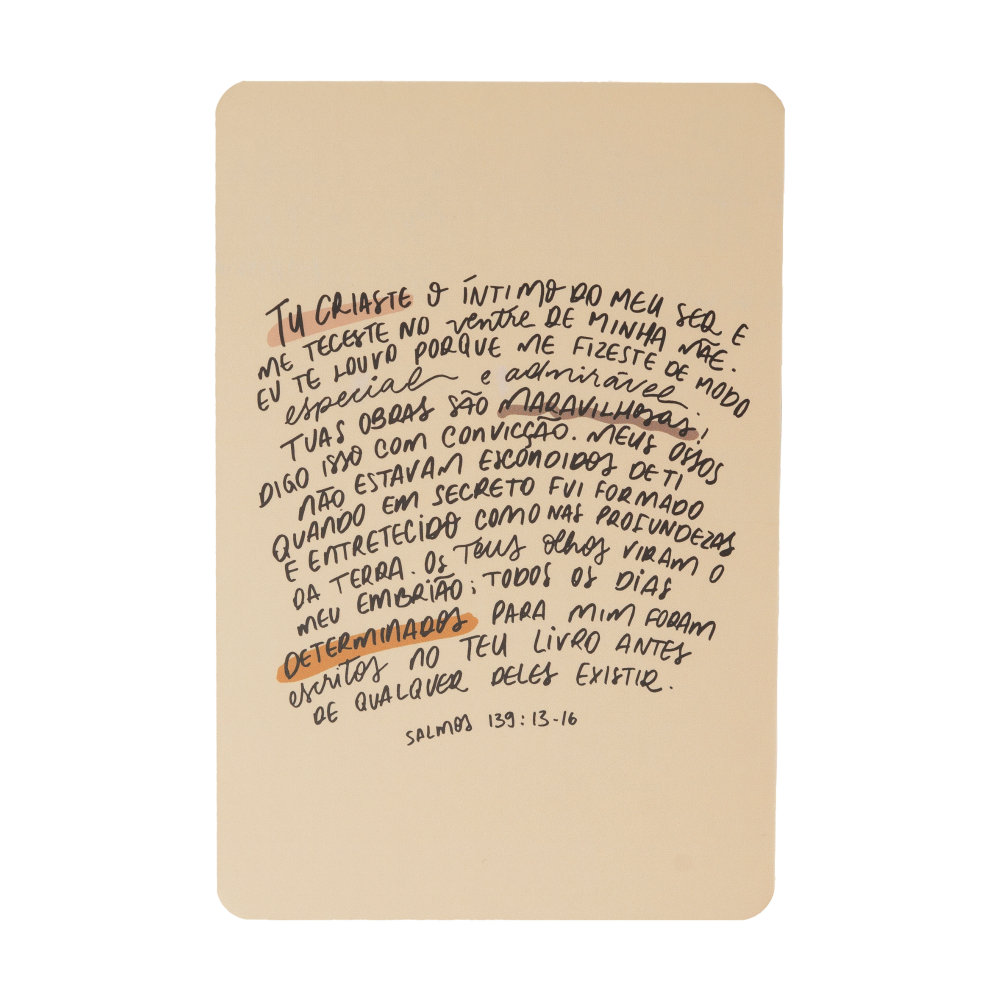 TU CRIASTE O ÍNTIMO DO MEU SER E
ME TECESTE NO ventre DE MINHA MÃE.
EU TE LOUVO PORQUE ME FIZESTE DE MODO
especial e admirável.
TUAS OBRAS SÃO MARAVILHOSAS!
DIGO ISSO COM CONVICÇÃO. MEUS OSSOS
NÃO ESTAVAM ESCONDIDOS DE TI
QUANDO EM SECRETO FUI FORMADO
E ENTRETECIDO COMO NAS PROFUNDEZAS
DA TERRA. OS TEUS olhos VIRAM O
MEU EMBRIÃO; TODOS OS DIAS
DETERMINADOS PARA MIM FORAM
escritos NO TEU LIVRO ANTES
DE QUALQUER DELES EXISTIR.
SALMOS 139:13-16